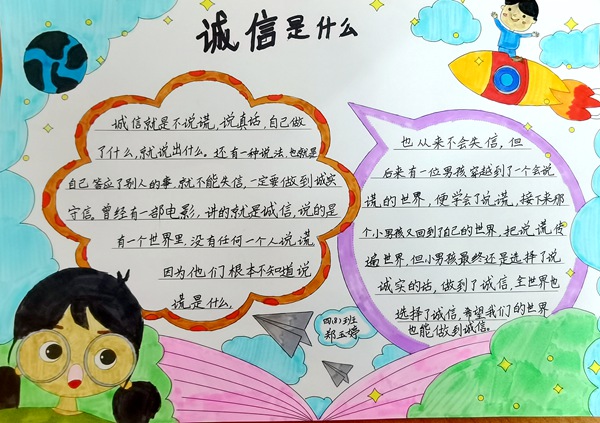 诚信是什么
诚信就是不说谎,说真话,自己做
了什么,就说出什么。还有一种说法也就是
自己答应了别人的事,就不能失信,一定要做到诚实
守信,曾经有一部电影,讲的就是诚信,说的是
有一个世界里,没有任何一个人说谎
因为他们根本不知道说
谎是什么.
也从来不会失信,但
后来有一位男孩穿越到了一个会说
谎的世界,便学会了说谎,接下来那
个小男孩又回到了自己的世界,把说谎传
遍世界,但小男孩最终还是选择了说
诚实的话,做到了诚信,全世界也
选择了诚信,希望我们的世界
也能做到诚信。
四(8)班
郑玉婷